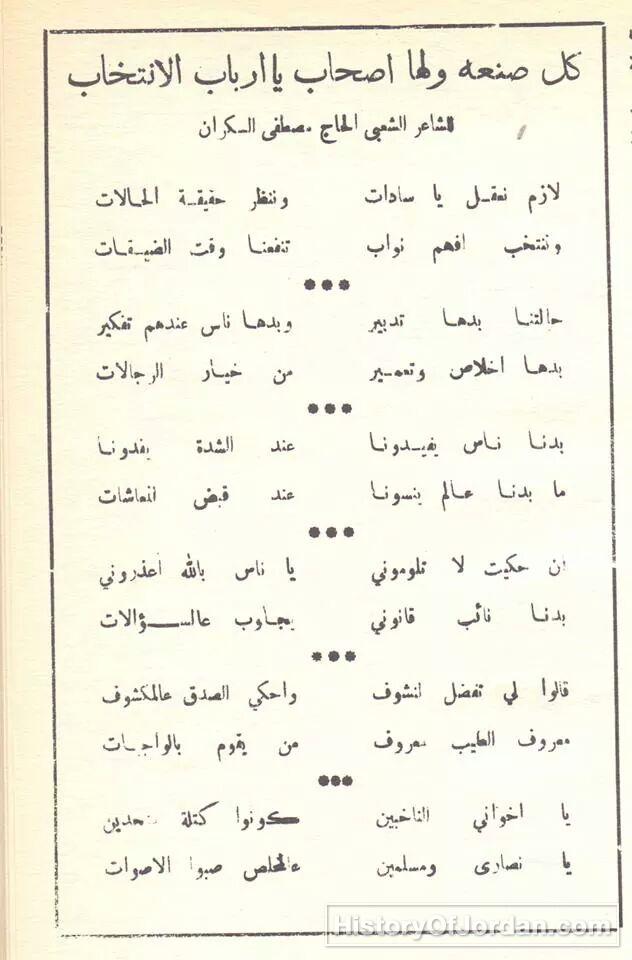 كل صنعه ولها اصحاب يا ارباب الانتخاب
للشاعر الشعبي الحاج مصطفى السكران
لازم نعقل يا سادات وننظر حقيقة الحالات
وننتخب افهم نواب تنفعنا وقت الضيقات
***
حالتنا بدها تدبير وبدها ناس عندهم تفكير
بدها اخلاص وتعمير من خيار الرجالات
***
بدنا ناس يفيدونا عند الشدة يفدونا
ما بدنا عالم ينسونا عند قبض المعاشات
***
ان حكيت لا تلوموني يا ناس بالله اعذروني
بدنا نائب قانوني يجاوب عالسؤالات
***
قالوا لي تفضل لنشوف واحكي الصدق عالمكشوف
معروف الطيب معروف من يقوم بالواجبات
***
يا اخواني الناخبين كونوا كتلة متحدين
يا نصارى ومسلمين عالمخلص صبوا الاصوات
HistoryOfJordan.com